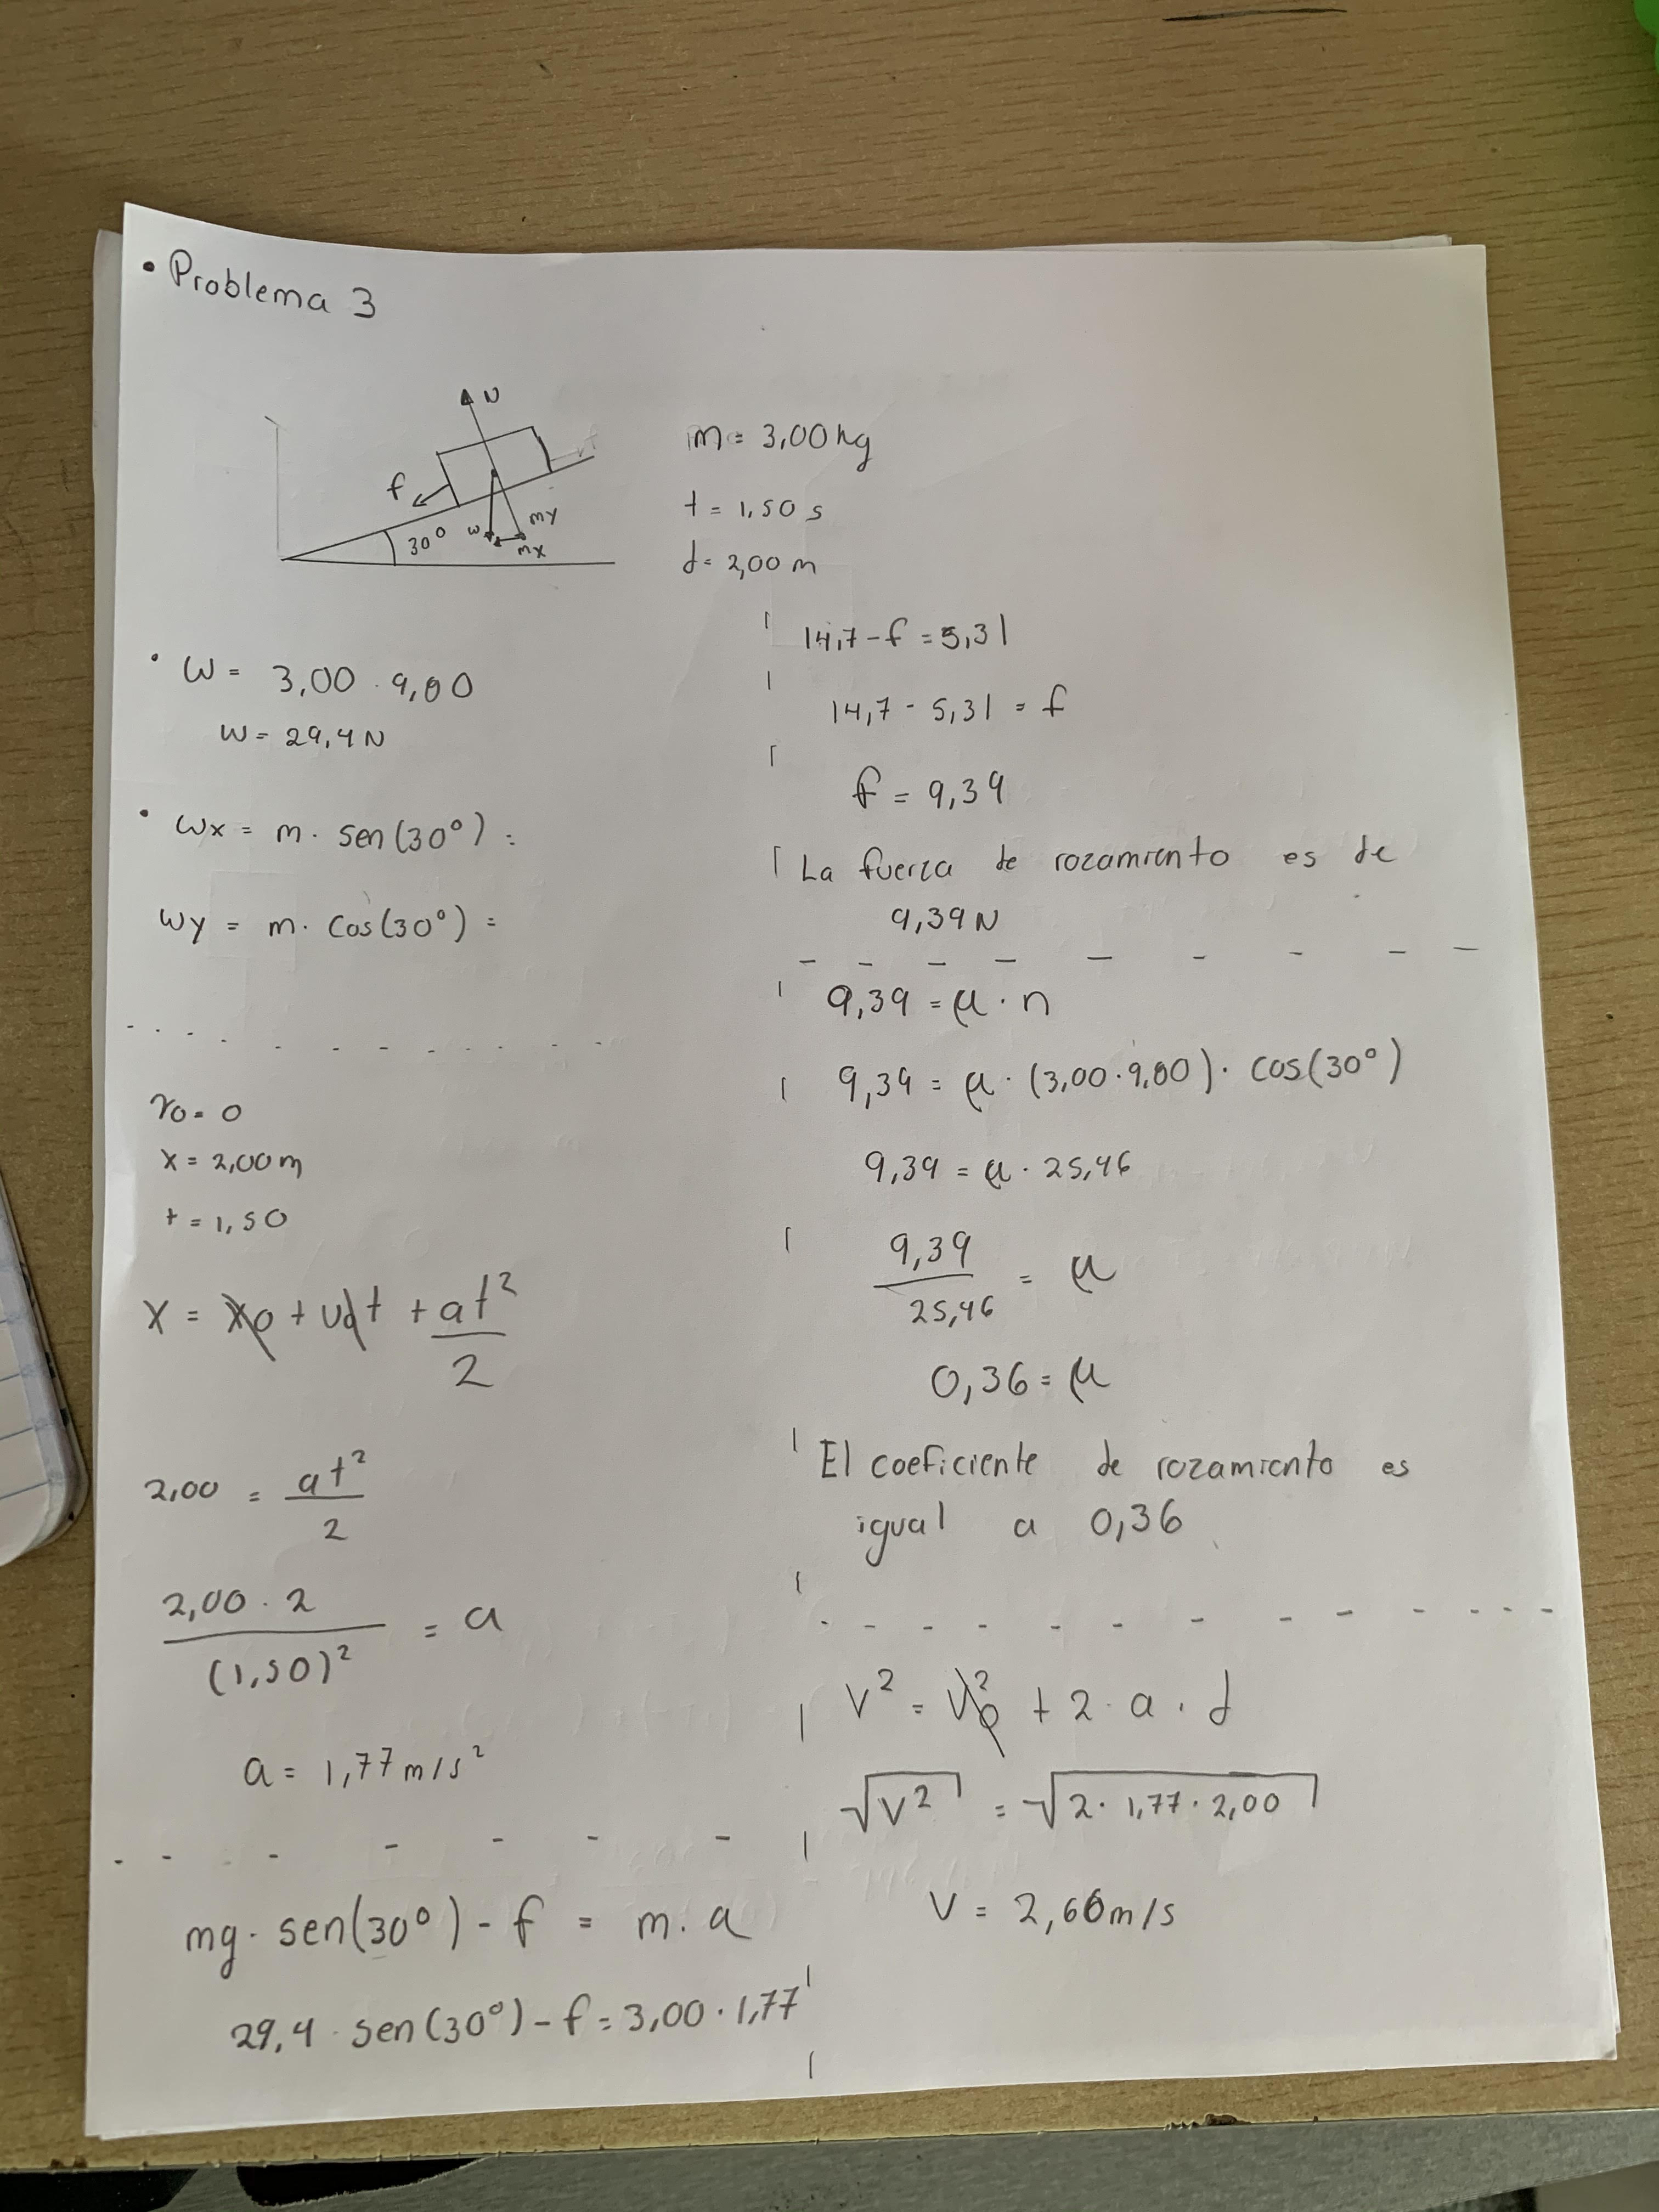 • Problema 3
N
f
30°
w
my
mx
m = 3,00 kg
t = 1,50 s
d = 2,00 m
• W = 3,00 · 9,80
W = 29,4 N
• Wx = m · sen(30°) =
Wy = m · cos(30°) =
x = 2,00 m
t = 1,50
X = Xo + Vot + at²
2
2,00 = at²
2
2,00 · 2
(1,50)²
= a
a = 1,77 m/s²
mg · sen(30°) - f = m · a
29,4 · sen(30°) - f = 3,00 · 1,77
14,7 - f = 5,31
14,7 - 5,31 = f
f = 9,39
La fuerza de rozamiento es de
9,39 N
9,39 = μ · n
9,39 = μ · (3,00 · 9,80) · cos(30°)
9,39 = μ · 25,46
9,39
25,46
= μ
0,36 = μ
El coeficiente de rozamiento es
igual a 0,36
V² = Vo² + 2 · a · d
√V² = √2 · 1,77 · 2,00
V = 2,66 m/s